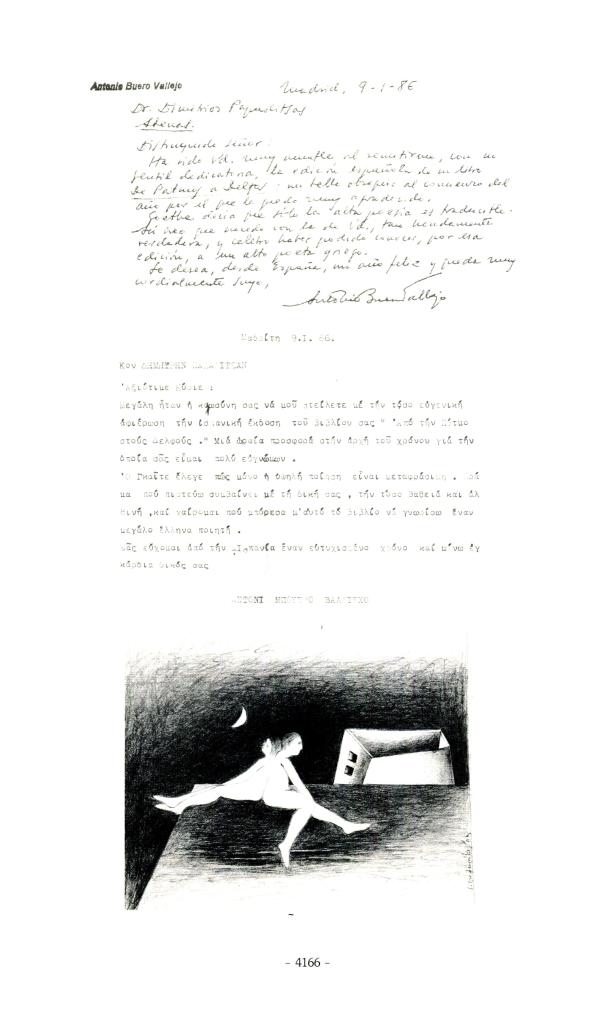 Antonio Buero Vallejo
Madrid, 9-1-86
Dr. Dimitrios Papaditsas
Atenas.
Distinguido Señor:
Ha sido Vd. muy amable al remitirme, con su
gentil dedicatoria, la edición española de su libro
De Patmos a Delfos: un bello obsequio al comienzo del
año por el que le quedo muy agradecido.
Goethe decía que sólo la alta poesía es traducible.
Así creo que sucede con la de Vd., tan hondamente
verdadera, y celebro haber podido conocer, por esa
edición, a un alto poeta griego.
Le desea, desde España, un año feliz y queda muy
cordialmente suyo,
Antonio Buero Vallejo
Μαδρίτη 9.Ι. 86.
Κον ΔΗΜΗΤΡΗΝ
'Αξιότιμε Κύριε :
Μεγάλη ήταν ή καλωσύνη σας νά μοῦ στείλετε μέ τήν τόσο εὐγενική
ἀφιέρωση τήν ἱσπανική ἔκδοση τοῦ βιβλίου σας " 'Από τήν Πάτμο
στούς Δελφούς ." Μιά ὡραία προσφορά στήν ἀρχή τοῦ χρόνου γιά τήν
ὁποία σᾶς εἶμαι πολύ εὐγνώμων .
'Ο Γκαῖτε ἔλεγε πώς μόνο ἡ ὑψηλή ποίηση εἶναι μεταφράσιμη .
μα πού πιστεύω συμβαίνει μέ τή δική σας , τήν τόσο βαθειά καί ἀλ
θινή ,καί χαίρομαι πού μπόρεσα μ'αὐτό τό βιβλίο νά γνωρίσω ἕναν
μεγάλο ἕλληνα ποιητή .
Σᾶς εὔχομαι ἀπό τήν 'Ισπανία ἕναν εὐτυχισμένο χρόνο καί μένω ἐγ
κάρδια δικός σας
ΑΝΤΟΝΙ ΜΠΟΥΕΡΟ ΒΑΛΛΙΕΧΟ
- 4166 -